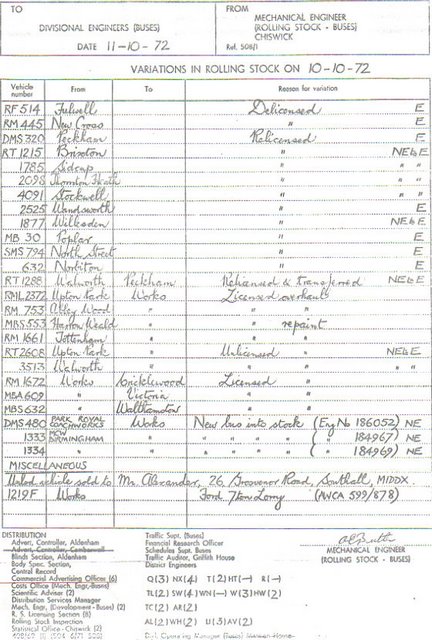 TO
FROM
DIVISIONAL ENGINEERS (BUSES)
MECHANICAL ENGINEER
(ROLLING STOCK - BUSES)
CHISWICK
DATE 11-10-72
Ref. 508/1
VARIATIONS IN ROLLING STOCK ON 10-10-72
Vehicle number From To Reason for variation
RF 514 Fulwell Delicensed E
RM 445 New Cross " E
DMS 320 Peckham Relicensed E
RT 1215 Brixton " NE&E
1785 Sidcup " " "
2098 Thornton Heath " " "
4091 Stockwell " " "
2525 Wandsworth " E
1877 Willesden " NE&E
MB 30 Poplar " E
SMS 794 North Street " E
632 Norbiton " E
RT 1288 Walworth Peckham Relicensed & transferred NE&E
RML 2372 Upton Park Works Licensed overhaul
RM 753 Abbey Wood " " "
MBS 553 Harrow Weald " " repaint
RM 1661 Tottenham " " "
RT 2608 Upton Park " Unlicensed " NE&E
3513 Walworth " " " " "
RM 1672 Works Cricklewood Licensed "
MBA 609 " Victoria " "
MBS 632 " Walthamstow " "
DMS 480 PARK ROYAL COACHWORKS Works New bus into stock (Eng No 186052) NE
1333 MCW BIRMINGHAM " " " " " ( " " 184967) NE
1334 " " " " " " ( " " 184969) NE
MISCELLANEOUS
Unlcd vehicle sold to Mr. Alexander, 26, Grosvenor Road, Southall, MIDDX.
1219F Works Ford 7 ton Lorry (AWCA 599/878)
DISTRIBUTION
Advert. Controller, Aldenham
Advert. Controller, Camberwell
Blinds Section, Aldenham
Body Spec. Section,
Central Record
Commercial Advertising Officer (6)
Costs Office (Mech. Engr.-Buses)
Scientific Adviser (2)
Distribution Services Manager
Mech. Engr. (Development - Buses) (2)
R. S. Licensing Section (8)
Rolling Stock Inspection
Statistical Office - Chiswick (2)
Traffic Supt. (Buses)
Financial Research Officer
Schedules Supt. Buses
Traffic Auditor, Griffith House
District Engineers
Q(3) NX(4) T(2) HT(-) R(-)
TL(2) SW(4) WN(-) W(3) HW(2)
TC(2) AR(2)
AL(2) WH(2) U(3) AV(2)
MECHANICAL ENGINEER
(ROLLING STOCK - BUSES)